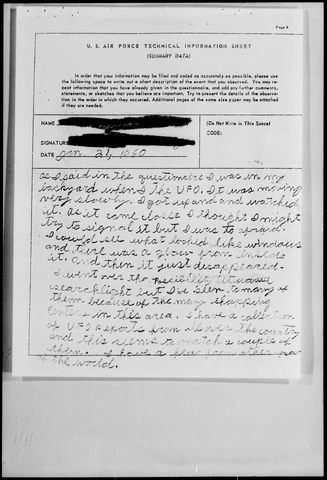 Page 4
U. S. AIR FORCE TECHNICAL INFORMATION SHEET
(SUMMARY DATA)
In order that your information may be filed and coded as accurately as possible, please use
the following space to write out a short description of the event that you observed. You may re-
peat information that you have already given in the questionnaire, and add any further comments,
statements, or sketches that you believe are important. Try to present the details of the observa-
tion in the order in which they occurred. Additional pages of the same size paper may be attached
if they are needed.
NAME
(Do Not Write in This Space)
CODE:
SIGNATURE
DATE Jan. 21, 1960
as I said in the questionaire I was in my
backyard when I the UFO. It was moving
very slowly. I got up and watched
it. As it came closer I thought I might
try to signal it but I was to afraid.
I could see what looked like windows
and there was a glow from inside
it. And then it just disappeared.
I went over the it was a
searchlight but I've seen to many of
them because of the many shopping
centers in this area. I have a collection
of UFO reports from all over the country
and this seems to match a couple of
them. I have a few from other
of the world.